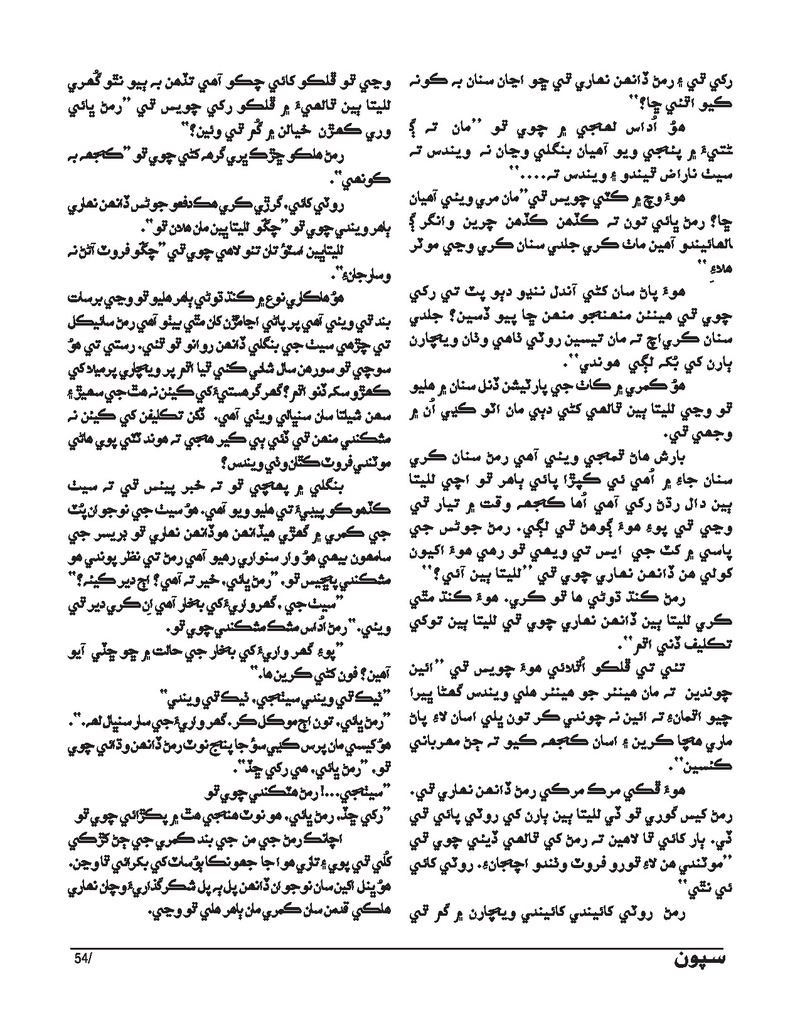 رکي ٿي ۽ رمڻ ڏانهن نهاري ٿي ڇو اڃان سنان به ڪونه
ڪيو اٿئي ڇا؟‘‘
هوُ اُداس لهجي ۾ چوي ٿو ’’مان ته ڳ
ڻتيءَ ۾ پئجي ويو آهيان بنگلي وڃان نہ ويندس ته
سيٺ ناراض ٿيندو ۽ ويندس ته....‘‘
هوءَ وچ ۾ ڪٽي چويس ٿي’’مان مري ويئي آهيان
ڇا؟ رمڻ ڀائي تون ته ڪڏهن ڪڏهن چرين وانگر ڳ
الهائيندو آهين ماٺ ڪري جلدي سنان ڪري وڃي موٽر
هلاءِ ‘‘
هوءَ پاڻ سان کڻي آندل ننڍو دٻو پٽ تي رکي
چوي ٿي هيئنئن منهنجو منهن ڇا پيو ڏسين؟ جلدي
سنان ڪري‌اچ ته مان تيسين روٽي ٺاهي وٺان ويچارن
ٻارن کي بُک لڳي هوندي‘‘.
هوُ ڪمري ۾ ڪاٺ جي پارٽيشن ڏنل سنان ۾ هليو
ٿو وڃي لليتا ٻين ٿالهي کڻي دٻي مان اٽو ڪڍي اُن ۾
وجهي ٿي.
بارش هاڻ ٿمجي ويئي آهي رمڻ سنان ڪري
سنان جاءِ ۾ اُهي ئي ڪپڙا پائي ٻاهر ٿو اچي لليتا
ٻين دال رڌڻ رکي آهي اُها ڪجهه وقت ۾ تيار ٿي
وڃي ٿي پوءِ هوءَ ڳوهڻ ٿي لڳي. رمڻ جوڻس جي
پاسي ۾ کٽ جي ايس تي ويهي ٿو رهي هوءَ اکيون
کولي هن ڏانهن نهاري چوي ٿي ’’لليتا ٻين آئي؟‘‘
رمڻ ڪنڌ ڌوڻي ها ٿو ڪري. هوءَ ڪنڌ مٿي
ڪري لليتا ٻين ڏانهن نهاري چوي ٿي لليتا ٻين توکي
تڪليف ڏني اٿم‘‘.
تئي تي ڦلڪو اُٿلائي هوءَ چويس ٿي ’’ائين
چوندين ته مان هينئر جو هينئر هلي ويندس گهڻا ڀيرا
چيو اٿمان۽ ته ائين نہ چوندي ڪر تون ڀلي اسان لاءِ پاڻ
ماري هڇا ڪرين ۽ اسان ڪجهه ڪيو ته ڄڻ مهرباني
ڪئسين‘‘.
هوءَ ڦڪي مرڪ مرڪي رمڻ ڏانهن نهاري ٿي.
رمڻ کيس گوري ٿو ڏي لليتا ٻين ٻارن کي روٽي پائي ٿي
ڏي. ٻار کائي ٿا لاهين ته رمڻ کي ٿالهي ڏيئي چوي ٿي
’’موٽندي هن لاءِ ٿورو فروٽ وٺندو اچجان۽. روٽي کائي
ئي نٿي‘‘
رمڻ روٽي کائيندي کائيندي ويچارن ۾ گم ٿي
وڃي ٿو ڦلڪو کائي چڪو آهي تڏهن به ٻيو نٿو گُهري
لليتا ٻين ٿالهيءَ ۾ ڦلڪو رکي چويس ٿي ’’رمڻ ڀائي
وري ڪهڙن خيالن ۾ گُم ٿي وئين؟‘‘
رمڻ هلڪو ڇڙڪ ڀري گرهه کڻي چوي ٿو ’’ڪجهه به
ڪونهي‘‘.
روٽي کائي، گرڙي ڪري هڪ دفعو جوڻس ڏانهن نهاري
ٻاهر ويندي چوي ٿو ’’چڱو لليتا ٻين مان هلان ٿو‘‘.
لليتا ٻين اسٽوُ تان تئو لاهي چوي ٿي ’’چڱو فروٽ آڻڻ نہ
وسارجان۽‘‘.
هوُ هاڪاري نوع ۾ ڪنڌ ڌوڻي ٻاهر هليو ٿو وڃي برسات
بند ٿي ويئي آهي پر پاڻي اڃا مڙن کان مٿي بيٺو آهي رمڻ سائيڪل
تي چڙهي سيٺ جي بنگلي ڏانهن روانو ٿو ٿئي، رستي تي هوُ
سوچي ٿو سورهن سال شادي ڪئي ٿيا اٿم پر ويچاري پرميلا کي
ڪهڙو سک ڏنو اٿم؟ گهر گرهستيءَ کي ڪيئن نہ هٿ جي سهيڙ ۽
سهن شيلتا سان سنڀالي ويٺي آهي. ٿڱن تڪليفن کي ڪيئن نہ
مشڪندي منهن ٿي ڏئي ٻي ڪير هجي ته هوند ٽٽي پوي هاڻي
موٽندي فروٽ ڪٿان وٺي ويندس؟
بنگلي ۾ پهچي ٿو ته خبر پيئس ٿي ته سيٺ
ڪڏهوڪو پيڍيءَ تي هليو ويو آهي. هوُ سيٺ جي نوجوان پُٽ
جي ڪمري ۾ گهڙي هيڏانهن هوڏانهن نهاري ٿو ڊريسر جي
سامهون بيهي هوُ وار سنواري رهيو آهي رمڻ تي نظر پوندي هو
مشڪندي پڇيس ٿو، ’’رمڻ ڀائي، خير ته آهي؟ اڄ دير ڪيئه؟‘‘
’’سيٺ جي، گهرواريءَ کي بخار آهي اِن ڪري دير ٿي
ويئي.‘‘رمڻ اُداس مشڪ مشڪندي چوي ٿو.
’’پوءِ گهرواريءَ کي بخار جي حالت ۾ ڇو ڇڏي آيو
آهين؟ فون کڻي ڪرين ها.‘‘
’’ٺيڪ ٿي ويندي سيٺجي، ٺيڪ ٿي ويندي‘‘
’’رمڻ ڀائي، تون اڄ موڪل ڪر، گهرواريءَ جي سار سنڀال لهه.‘‘.
هوُ کيسي مان پرس ڪڍي سوُ جا پنج نوٽ رمڻ ڏانهن وڌائي چوي
ٿو، ’’رمڻ ڀائي، هي رکي ڇڏ‘‘.
’’سيٺجي...! رمڻ هٽڪندي چوي ٿو
’’رکي ڇڏ، رمڻ ڀائي، هو نوٽ هنجي هٿ ۾ پڪڙائي چوي ٿو
اچانڪ رمڻ جي من جي بند ڪمري جي ڄڻ کڙڪي
کُلي ٿي پوي ۽ تازي هوا جا جهونڪا ٻوُسات کي ٻڪرائي ٿا وڃن.
هوُ پنل اکين سان نوجوان ڏانهن پل ٻه پل شڪرگذاريءَ وڃان نهاري
هلڪي قدمن سان ڪمري مان ٻاهر هلي ٿو وڃي.
54/
سپون